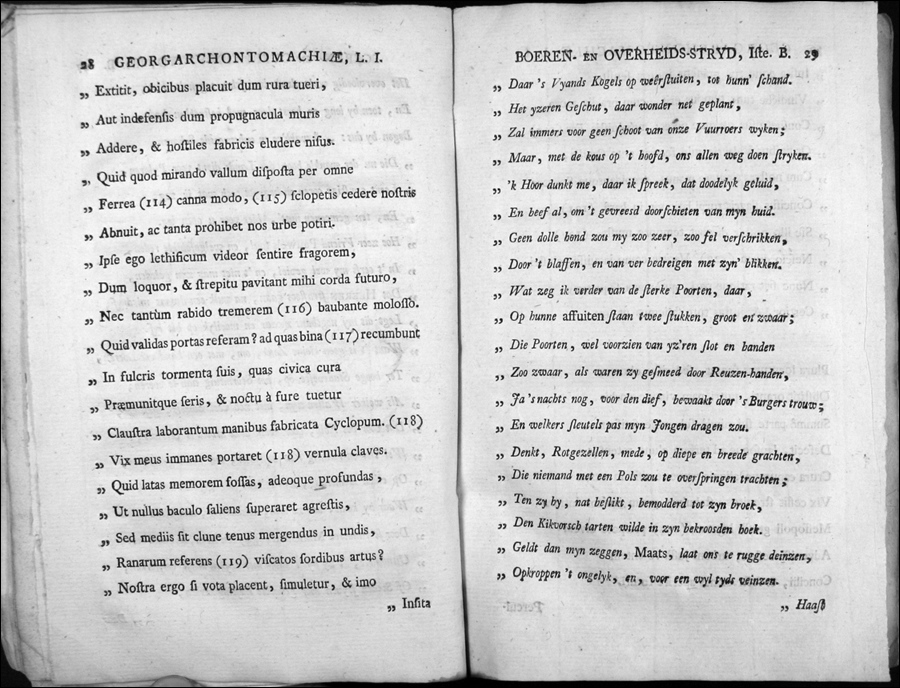 28 GEORGARCHONTOMACHIÆ, L. I.
„ Extitit, obicibus placuit dum rura tueri,
„ Aut indefenſis dum propugnacula muris
„ Addere, & hoſtiles fabricis eludere niſus.
„ Quid quod mirando vallum diſpoſta per omne
„ Ferrea (114) canna modo, (115) ſclopetis cedere noſtris
„ Abnuit, ac tanta prohibet nos urbe potiri.
„ Ipſe ego lethificum videor ſentire fragorem,
„ Dum loquor, & ſtrepitu pavitant mihi corda futuro,
„ Nec tantùm rabido tremerem (116) baubante moloſſo.
„ Quid validas portas referam? ad quas bina (117) recumbunt
„ In fulcris tormenta ſuis, quas civica cura
„ Præmunitque ſeris, & noctu à fure tuetur
„ Clauſtra laborantum manibus fabricata Cyclopum. (118)
„ Vix meus immanes portaret (118) vernula claves.
„ Quid latas memorem foſſas, adeoque profundas,
„ Ut nullus baculo ſaliens ſuperaret agreſtis,
„ Sed mediis ſit clune tenus mergendus in undis,
„ Ranarum referens (119) viſcatos ſordibus artus?
„ Noſtra ergo ſi vota placent, ſimuletur, & imo
„ Inſita
BOEREN- EN OVERHEIDS-STRYD, Iſte. B. 29
„ Daar 's Vyands Kogels op weêrſtuiten, tot hunn' ſchand.
„ Het yzeren Geſchut, daar wonder net geplant,
„ Zal immers voor geen ſchoot van onze Vuurroers wyken;
„ Maar, met de kous op 't hoofd, ons allen weg doen ſtryken.
„ 'k Hoor dunkt me, daar ik ſpreek, dat doodelyk geluid,
„ En beef al, om 't gevreesd doorſchieten van myn huid.
„ Geen dolle hond zou my zoo zeer, zoo fel verſchrikken,
„ Door 't blaffen, en van ver bedreigen met zyn' blikken.
„ Wat zeg ik verder van de ſterke Poorten, daar,
„ Op hunne affuiten ſtaan twee ſtukken, groot en zwaar;
„ Die Poorten, wel voorzien van yz'ren ſlot en banden
„ Zoo zwaar, als waren zy geſmeed door Reuzen-handen,
„ Ja 's nachts nog, voor den dief, bewaakt door 's Burgers trouw;
„ En welkers ſleutels pas myn Jongen dragen zou.
„ Denkt, Rotgezellen, mede, op diepe en breede grachten,
„ Die niemand met een Pols zou te overſpringen trachten;
„ Ten zy hy, nat beſlikt, bemodderd tot zyn broek,
„ Den Kikvorsch tarten wilde in zyn bekroosden hoek.
„ Geldt dan myn zeggen, Maats, laat ons te rugge deinzen,
„ Opkroppen 't ongelyk, en, voor een wyl tyds veinzen.
„ Haaſt